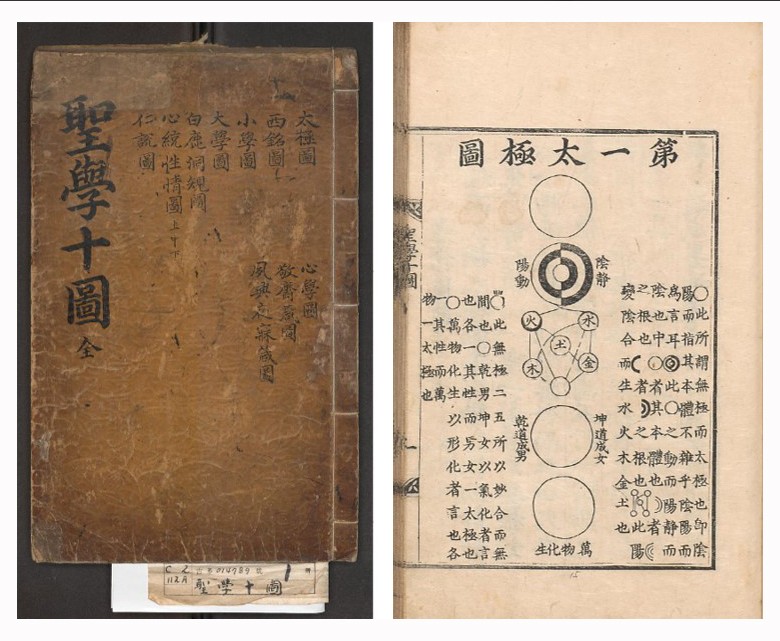 聖學十圖 全
太極圖
西銘圖
小學圖
大學圖
白鹿洞規圖
心統性情圖 上中下
仁說圖
心學圖
敬齋箴圖
夙興夜寐箴圖
C 2
112A
014989
聖學十圖
第一太極圖
陰靜
陽動
火
水
土
木
金
坤道成女
乾道成男
萬物化生
○此所謂無極而太極也卽陰
陽而指其本體不雜乎陰陽而
爲言耳◎此○之動而陽靜而
陰也中○者其本體也
之根也 者 之根也 此者陽
變陰合而生水火木金土也
此無極二五所以妙合而無
間也○乾男坤女以氣化者言
也各一其性而男女一太極也
○萬物化生以形化者言也各
一其性而萬
物一太極也
聖學十圖